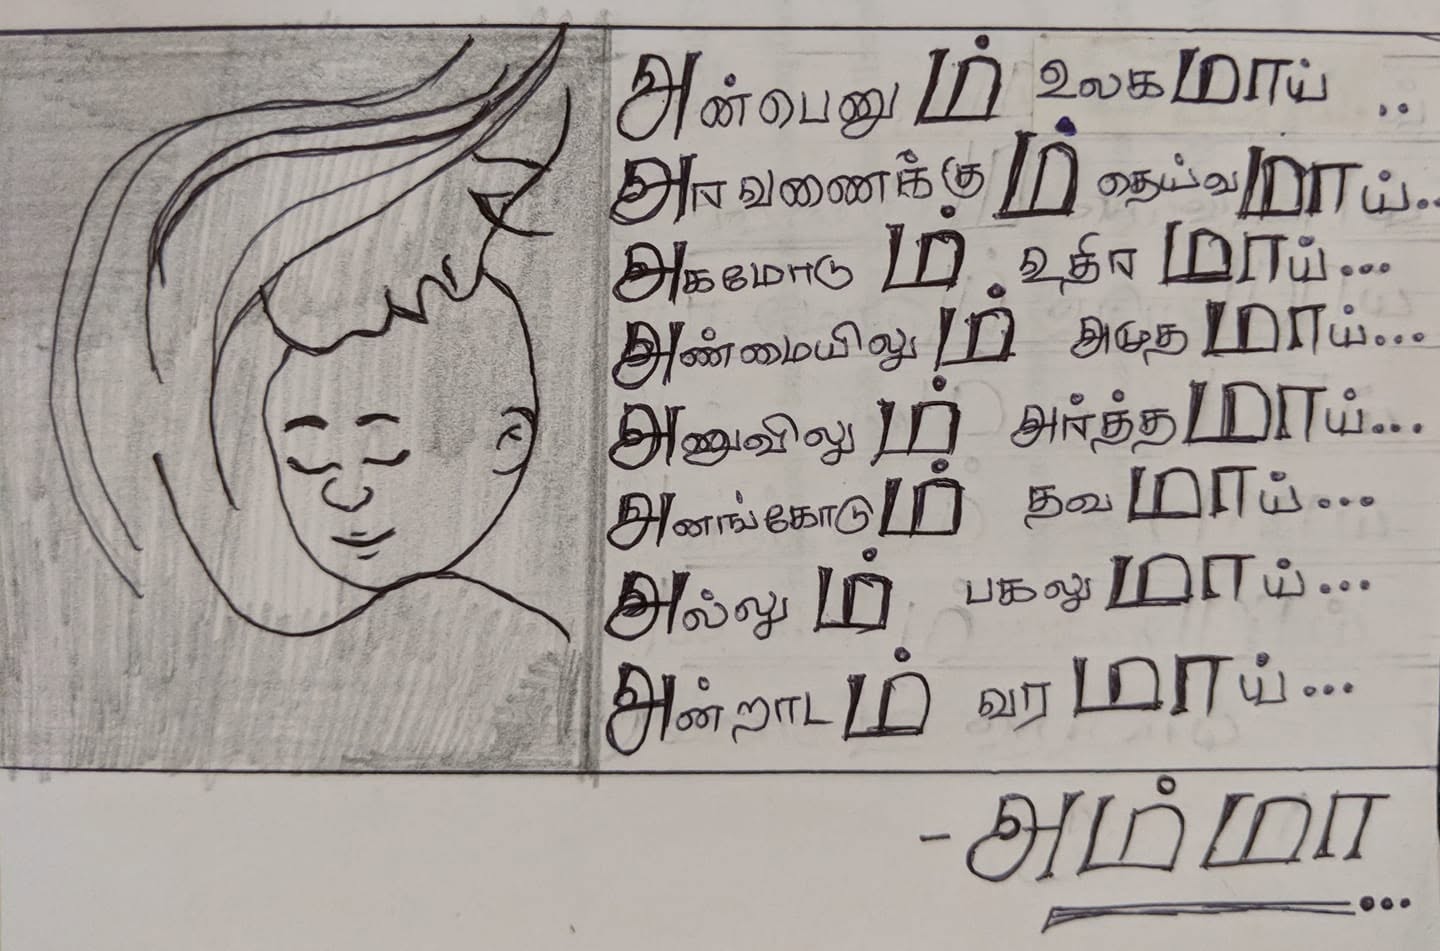 அன்பெனும் உலகமாய் ..
அரவணைக்கும் தெய்வமாய்..
அகமோடும் உதிரமாய்...
அண்மையிலும் அமுதமாய்...
அணுவிலும் அர்த்தமாய்...
அனங்கோடும் தவமாய்...
அல்லும் பகலுமாய்...
அன்றாடம் வரமாய்...
- அம்மா...